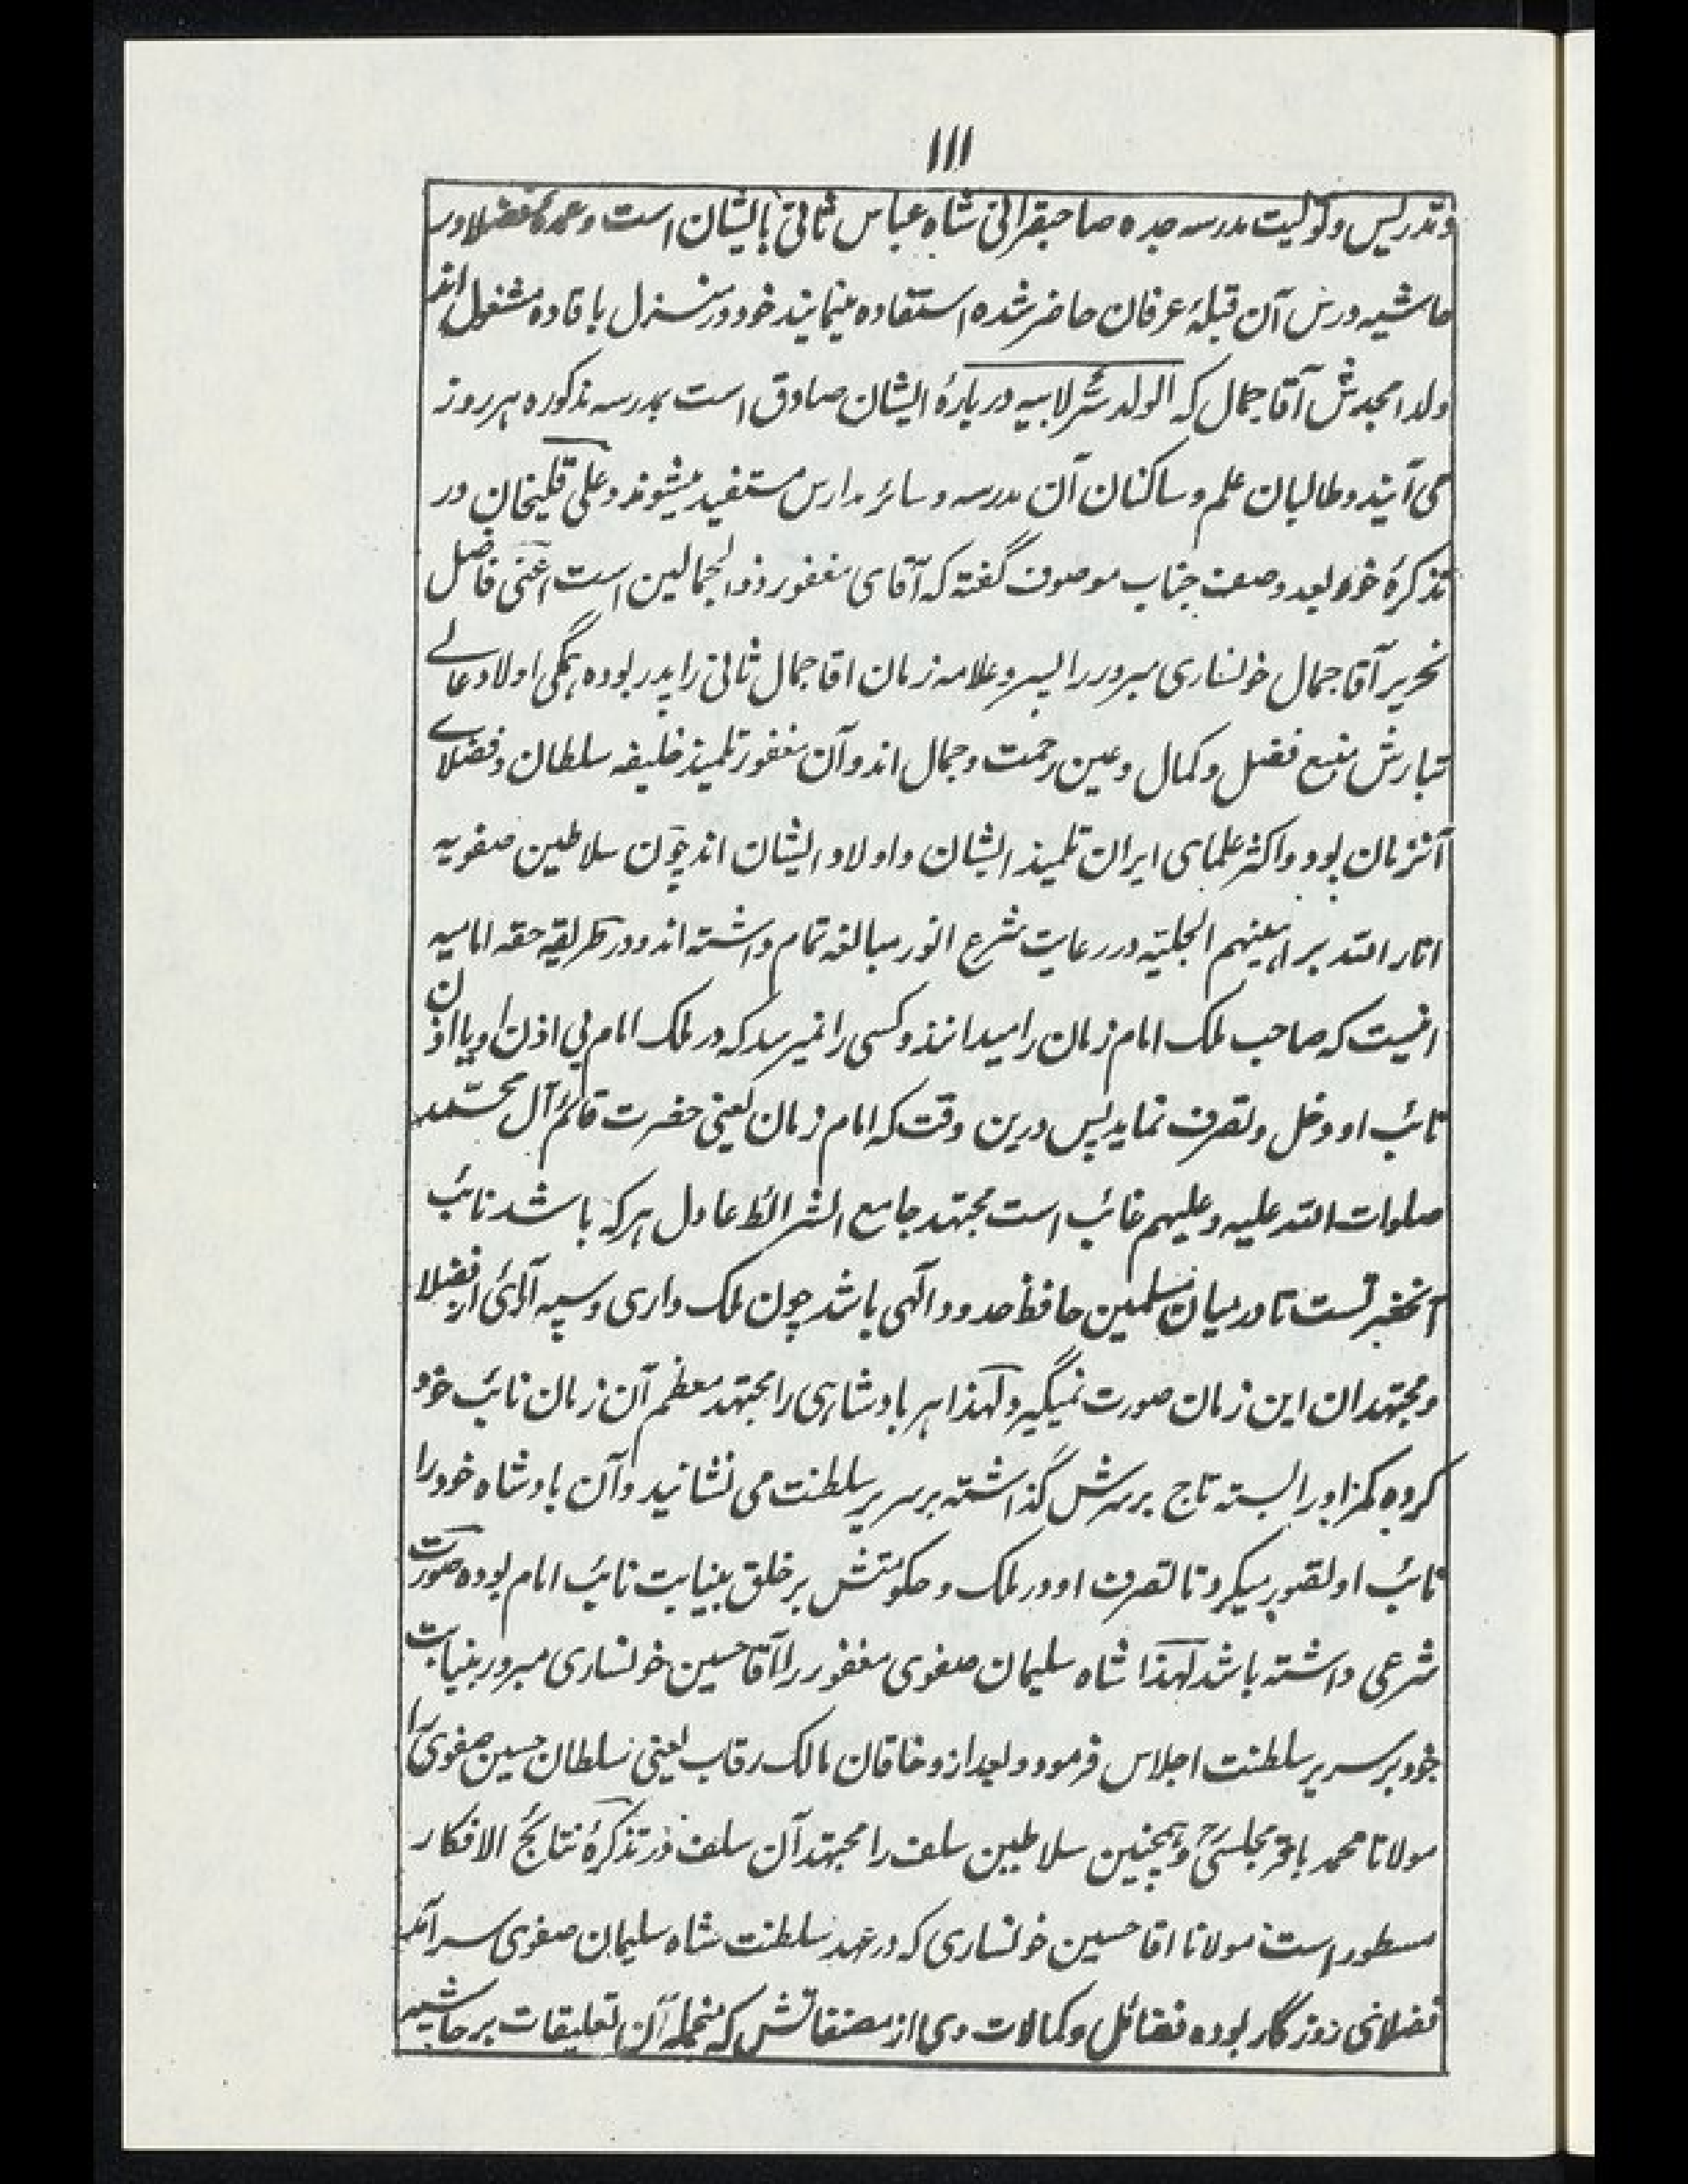 ۱۱۱
وتدریس وتولیت مدرسه جده صاحبقرانی شاه عباس ثانی بایشان است و عمده فضلا در
حاشیه درس آن قبلهٔ عرفان حاضر شده استفاده مینمایند خود در منزل بافاده مشغول اند
ولد امجدش آقا جمال که الولد سر لابیه دربارهٔ ایشان صادق است بمدرسه مذکوره هر روز
می آیند و طالبان علم و ساکنان آن مدرسه و سائر مدارس مستفید میشوند و علی قلیخان در
تذکرهٔ خود بعد وصف جناب موصوف گفته که آقای مغفور ذو الجمالین است اعنی فاضل
نحریر آقا جمال خونساری مبرور را پسر و علامه زمان اقا جمال ثانی را پدر بوده همگی اولاد عالی
تبارش منبع فضل و کمال و عین رحمت و جمال اند و آن مغفور تلمیذ خلیفه سلطان و فضلای
آنزمان بود و اکثر علمای ایران تلمیذ ایشان و اولاد ایشان اند چون سلاطین صفویه
انار الله براهینهم الجلیّه در رعایت شرع انور مبالغه تمام داشته اند و در طریقه حقه امامیه
اینست که صاحب ملک امام زمان را میدانند و کسی را نمیرسد که در ملک امام بی اذن او یا اذن
نائب او دخل و تصرف نماید پس درین وقت که امام زمان یعنی حضرت قائم آل محمّد
صلوات الله علیه و علیهم غائب است مجتهد جامع الشرائط عادل هر که باشد نائب
آنحضرتست تا در میان مسلمین حافظ حدود الهی باشد چون ملک داری و سپه آرائی از فضلا
و مجتهدان این زمان صورت نمیگیرد لهذا هر بادشاهی را مجتهد معظم آن زمان نائب خود
کرده کمر او را بسته تاج بر سرش گذاشته بر سریر سلطنت می نشانید و آن بادشاه خود را
نائب او تصور میکرد تا تصرف او در ملک و حکومتش بر خلق بنیابت نائب امام بوده صورت
شرعی داشته باشد لهذا شاه سلیمان صفوی مغفور را آقا حسین خونساری مبرور بنیابت
خود بر سریر سلطنت اجلاس فرمود و بعد ازو خاقان مالک رقاب یعنی سلطان حسین صفوی را
مولانا محمد باقر مجلسی و همچنین سلاطین سلف را مجتهد آن سلف در تذکرهٔ نتائج الافکار
مسطور است مولانا اقا حسین خونساری که در عهد سلطنت شاه سلیمان صفوی سرآمد
فضلای روزگار بوده فضائل و کمالات وی از مصنفاتش که منجمله آن تعلیقات بر حاشیه